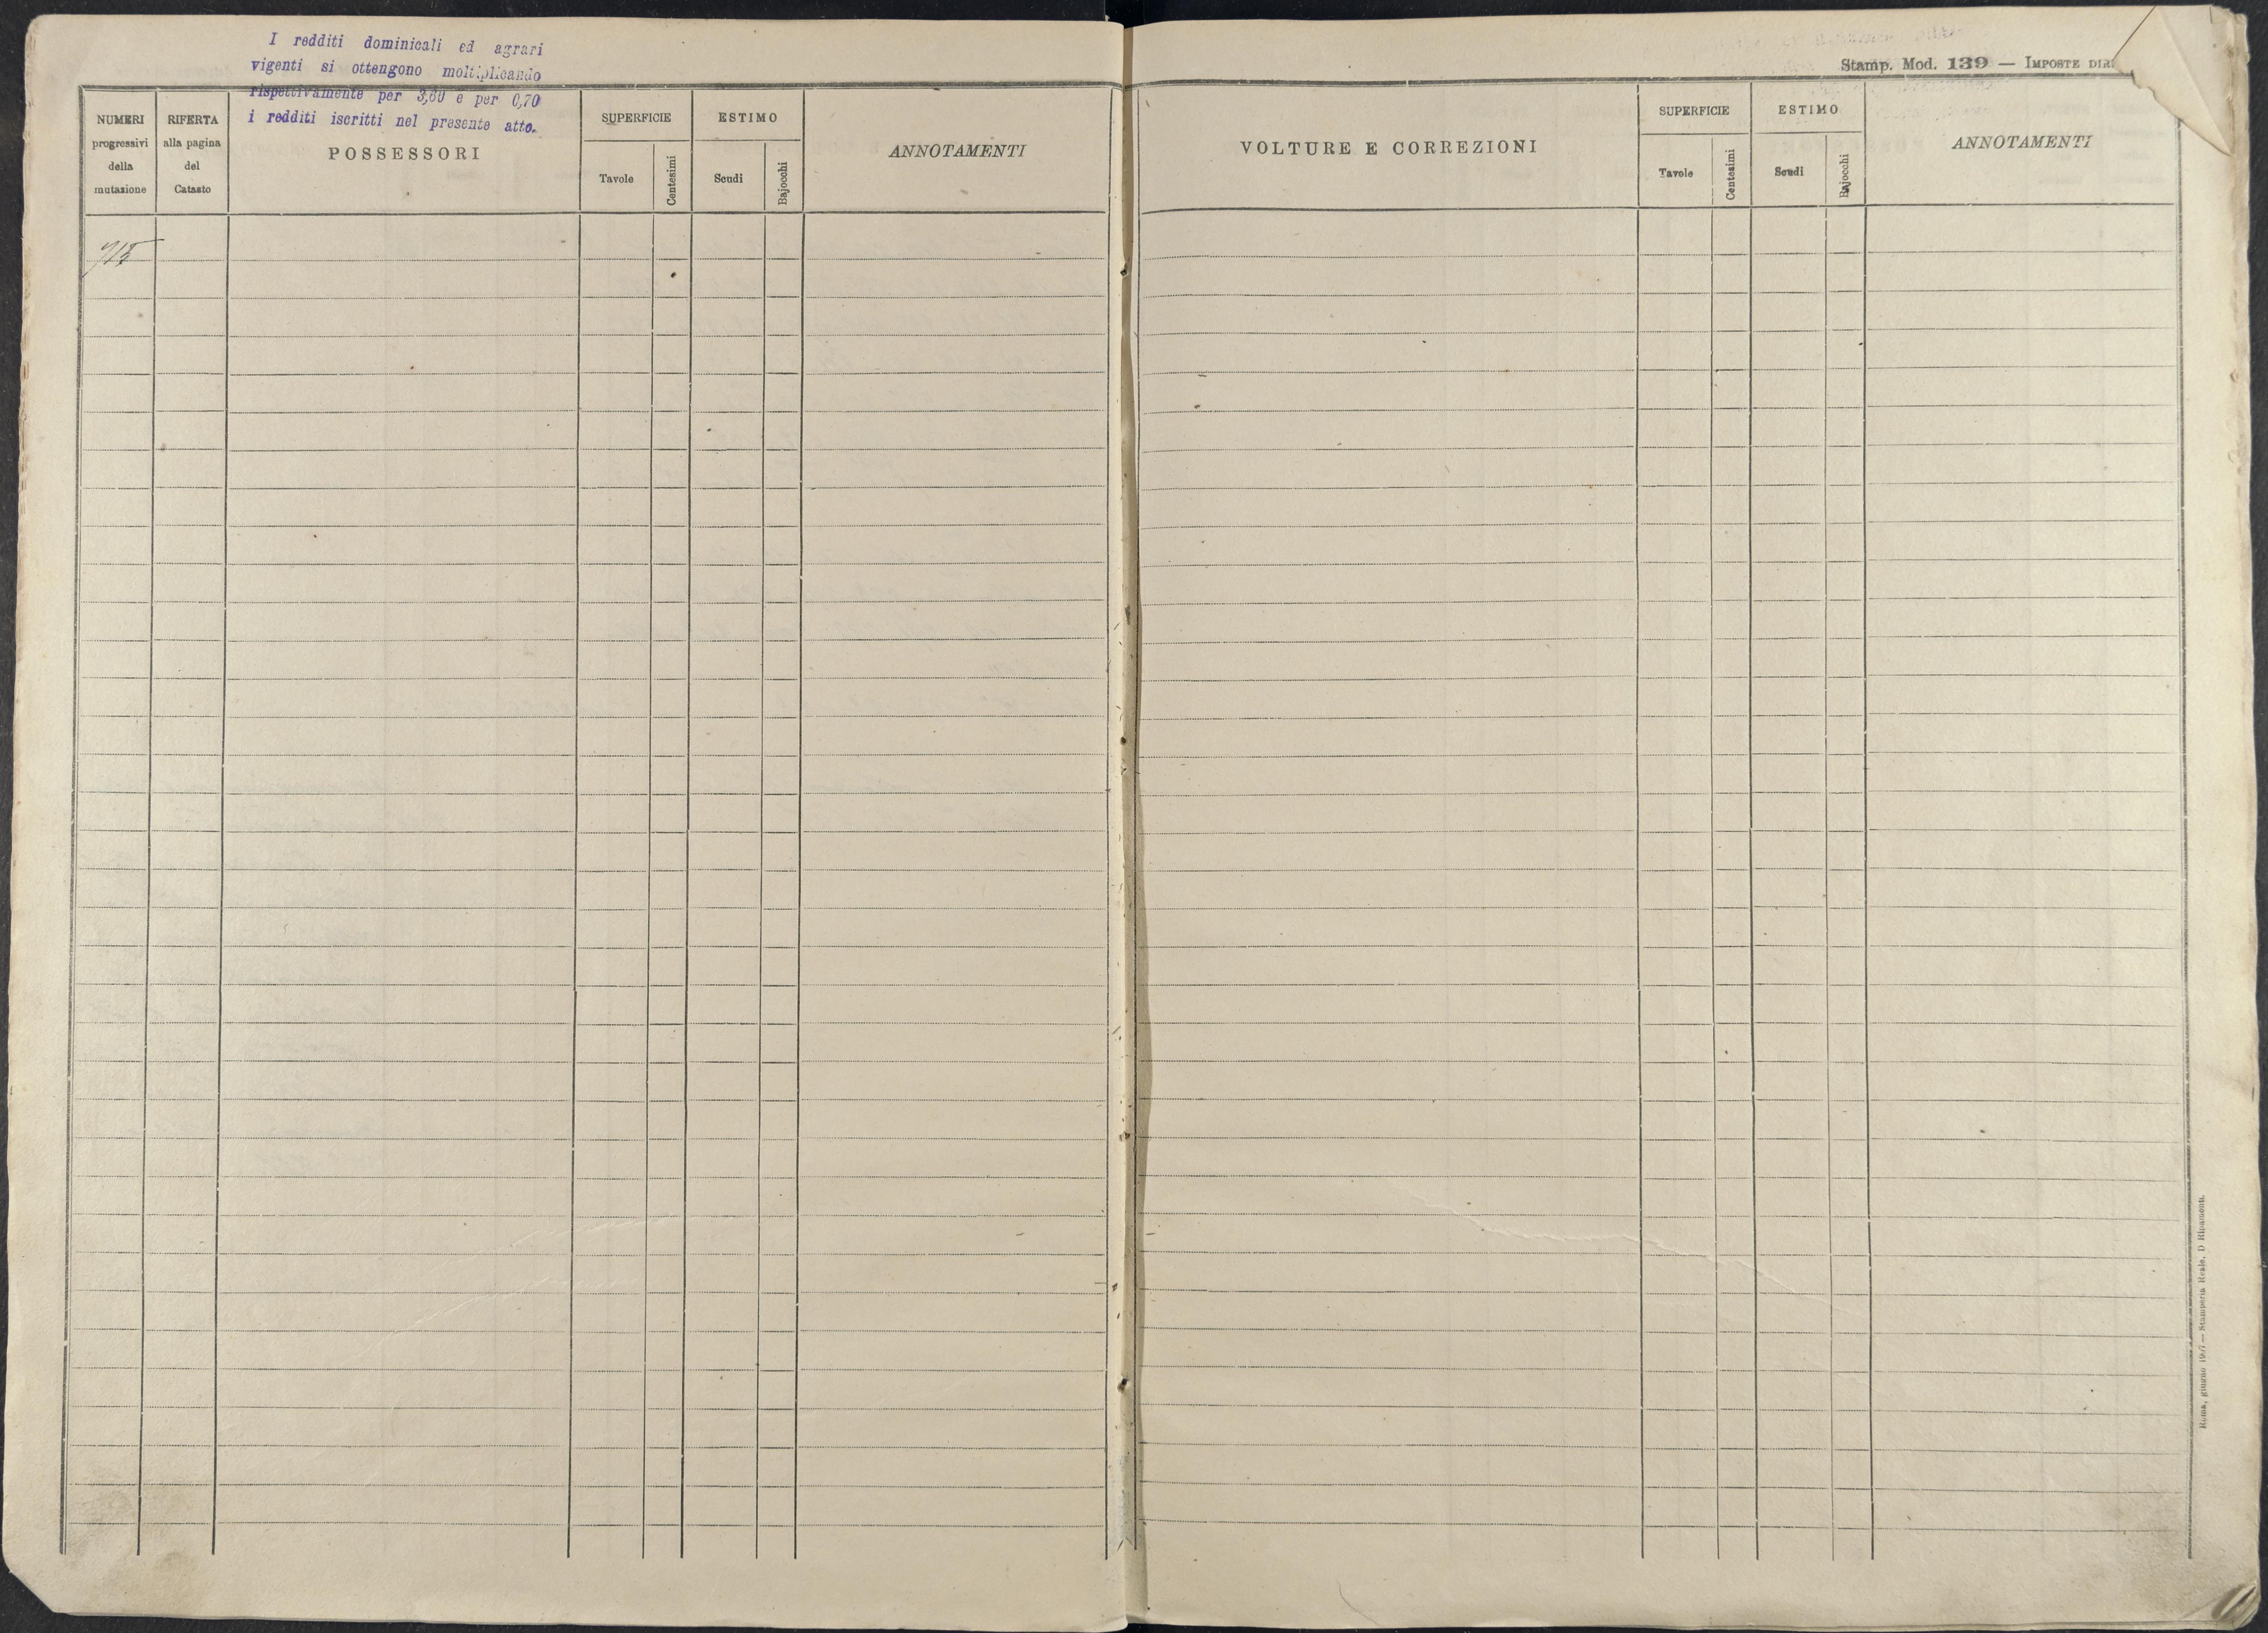 I redditi dominicali ed agrari
vigenti si ottengono moltiplicando
rispettivamente per 3,60 e per 0,70
i redditi iscritti nel presente atto.
NUMERI
progressivi
della
mutazione
RIFERTA
alla pagina
del
Catasto
POSSESSORI
SUPERFICIE
Tavole
Centesimi
ESTIMO
Scudi
Bajocchi
ANNOTAMENTI
715
Stamp. Mod. 139 — IMPOSTE DIR
VOLTURE E CORREZIONI
SUPERFICIE
Tavole
Centesimi
ESTIMO
Scudi
Bajocchi
ANNOTAMENTI
Roma, giugno — Stamperia Reale, D Ripamonti.